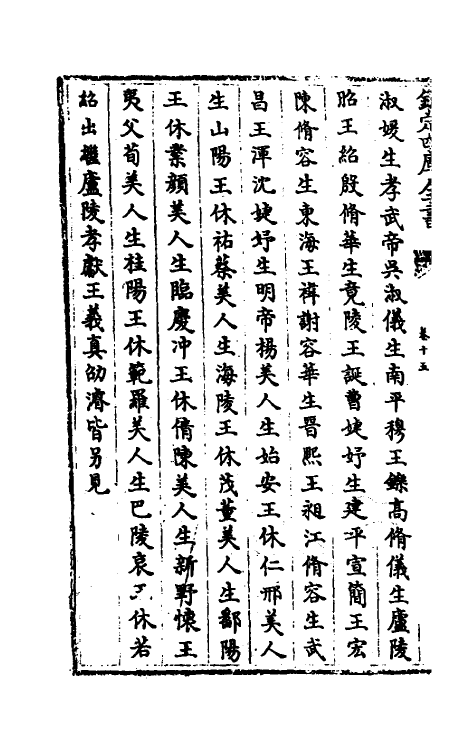 欽定四庫全書
卷十五
淑媛生孝武帝吳淑儀生南平穆王鑠高脩儀生廬陵
昭王紹殷脩華生竟陵王誕曹婕妤生建平宣簡王宏
陳脩容生東海王褘謝容華生晉熙王昶江脩容生武
昌王渾沈婕妤生明帝楊美人生始安王休仁邢美人
生山陽王休祐蔡美人生海陵王休茂董美人生鄱陽
王休業顏美人生臨慶沖王休倩陳美人生新野懷王
夷父荀美人生桂陽王休範羅美人生巴陵哀王休若
紹出繼廬陵孝獻王義真劭濬皆另見